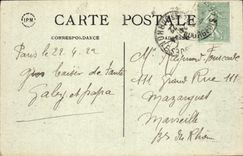 CARTE POSTALE
CORRESPONDANCE
Paris le 29.4.22
gros baiser de tante
Gaby et papa
M. Raymond
111 Grand Rue 111
Mazargues
Marseille
Bes du Rhône